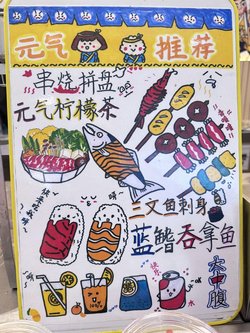 元气 推荐
串烧拼盘
元气柠檬茶
三文鱼刺身
蓝鳍吞拿鱼
大中腹